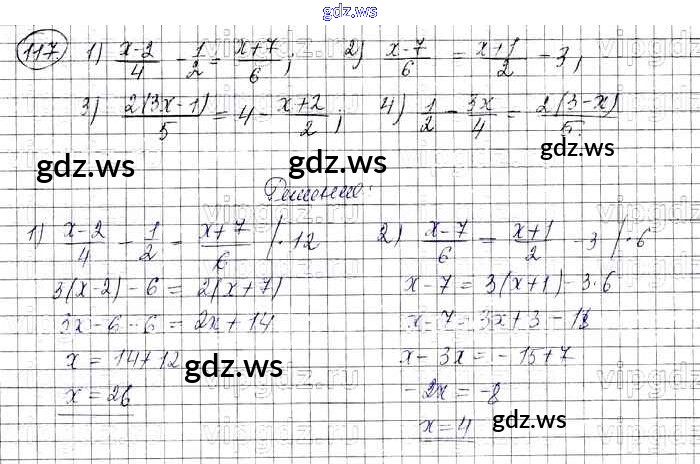 gdz.ws
117. 1) (x-2)/4 - 1/2 = (x+7)/6; 2) (x-7)/6 = (x+1)/2 - 3;
3) 2(3x-1)/5 = 4 - (x+2)/2; 4) 1/2 - 3x/4 = 2(3-x)/5.
gdz.ws gdz.ws gdz.ws
Решение:
1) (x-2)/4 - 1/2 = (x+7)/6 |·12 2) (x-7)/6 = (x+1)/2 - 3 |·6
3(x-2) - 6 = 2(x+7) x-7 = 3(x+1) - 3·6
3x - 6 - 6 = 2x + 14 x - 7 = 3x + 3 - 18
x = 14 + 12 x - 3x = -15 + 7
gdz.ws
x = 26 -2x = -8
x = 4
gdz.ws